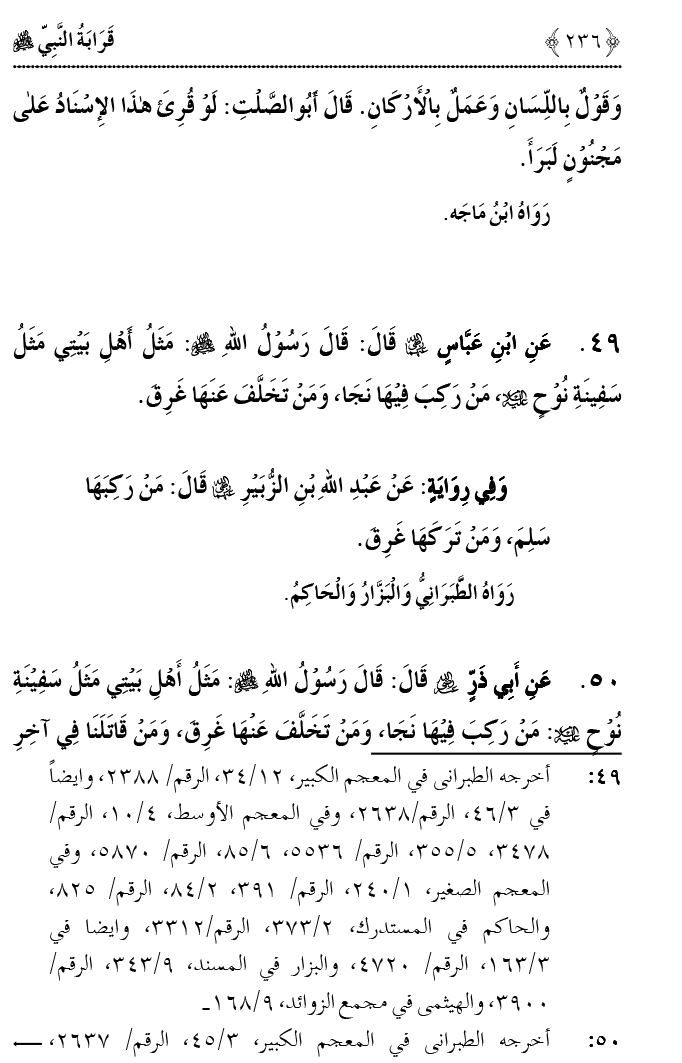 ﴿٢٣٦﴾ قَرَابَةُ النَّبِيِّ ﷺ
وَقَوْلٌ بِاللِّسَانِ وَعَمَلٌ بِالْأَرْكَانِ. قَالَ أَبُو الصَّلْتِ: لَوْ قُرِئَ هٰذَا الإِسْنَادُ عَلٰى
مَجْنُوْنٍ لَبَرَأَ.
رَوَاهُ ابْنُ مَاجَه.
٤٩. عَنِ ابْنِ عَبَّاسٍ ؓ قَالَ: قَالَ رَسُوْلُ اللهِ ﷺ: مَثَلُ أَهْلِ بَيْتِي مَثَلُ
سَفِينَةِ نُوْحٍ ؑ، مَنْ رَكِبَ فِيْهَا نَجَا، وَمَنْ تَخَلَّفَ عَنْهَا غَرِقَ.
وَفِي رِوَايَةٍ: عَنْ عَبْدِ اللهِ بْنِ الزُّبَيْرِ ؓ قَالَ: مَنْ رَكِبَهَا
سَلِمَ، وَمَنْ تَرَكَهَا غَرِقَ.
رَوَاهُ الطَّبَرَانِيُّ وَالْبَزَّارُ وَالْحَاكِمُ.
٥٠. عَنْ أَبِي ذَرٍّ ؓ قَالَ: قَالَ رَسُوْلُ اللهِ ﷺ: مَثَلُ أَهْلِ بَيْتِي مَثَلُ سَفِيْنَةِ
نُوْحٍ ؑ: مَنْ رَكِبَ فِيْهَا نَجَا، وَمَنْ تَخَلَّفَ عَنْهَا غَرِقَ، وَمَنْ قَاتَلَنَا فِي آخِرِ
٤٩: أخرجه الطبرانى في المعجم الكبير، ٣٤/١٢، الرقم/ ٢٣٨٨، وايضاً
في ٤٦/٣، الرقم/٢٦٣٨، وفي المعجم الأوسط، ١٠/٤، الرقم/
٣٤٧٨، ٣٥٥/٥، الرقم/ ٥٥٣٦، ٨٥/٦، الرقم/ ٥٨٧٠، وفي
المعجم الصغير، ٢٤٠/١، الرقم/ ٣٩١، ٨٤/٢، الرقم/ ٨٢٥،
والحاكم في المستدرك، ٣٧٣/٢، الرقم/٣٣١٢، وايضا في
١٦٣/٣، الرقم/ ٤٧٢٠، والبزار في المسند، ٣٤٣/٩، الرقم/
٣٩٠٠، والهيثمى في مجمع الزوائد، ١٦٨/٩ـ
٥٠: أخرجه الطبرانى في المعجم الكبير، ٤٥/٣، الرقم/ ٢٦٣٧،